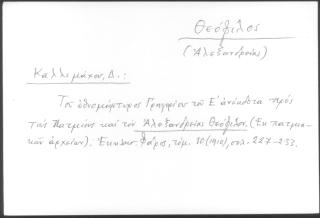 Θεόφιλος
(Ἀλεξανδρείας)
Καλλιμάχου, Δ.:
Τοῦ ἐθνομάρτυρος Γρηγορίου τοῦ Ε' ἀνέκδοτα πρός
τούς Πατμίους καί τόν Ἀλεξανδρείας Θεόφιλον, (Ἐκ πατμια-
κῶν ἀρχείων). Ἐκκλησ. Φάρος, τόμ. 10 (1910), σελ. 227-233.